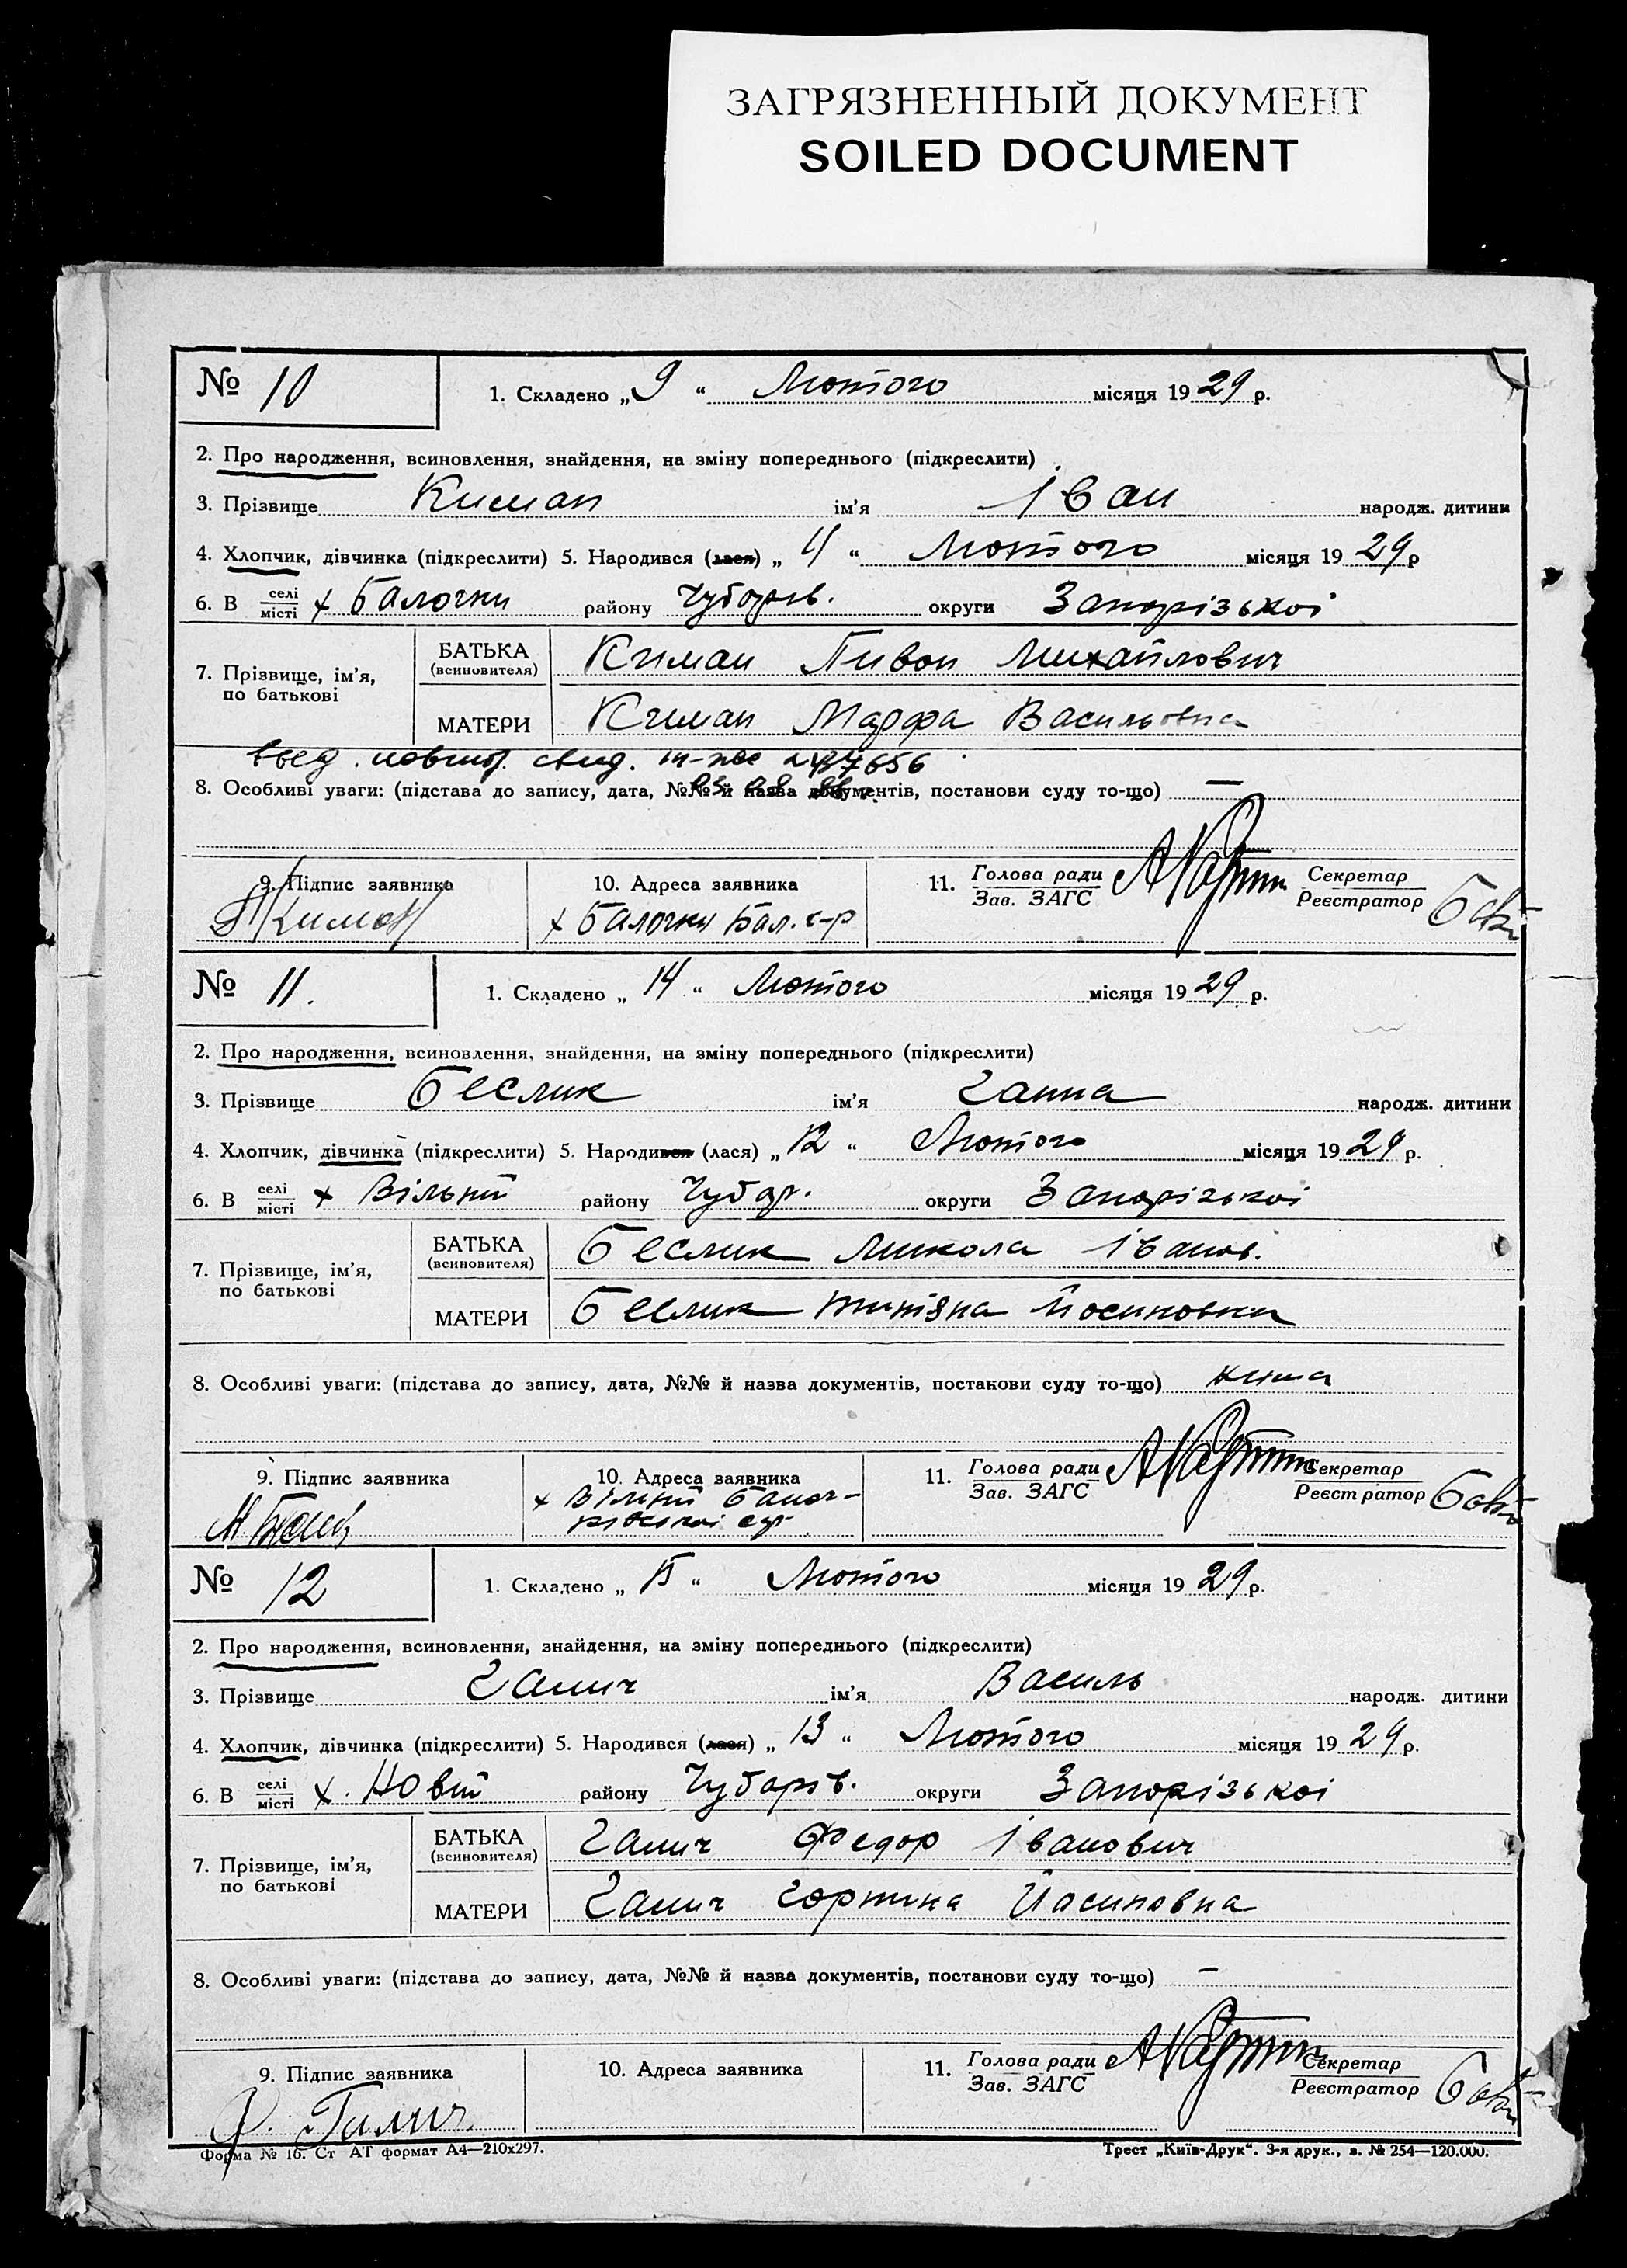 ЗАГРЯЗНЕННЫЙ ДОКУМЕНТ
SOILED DOCUMENT
№ 10
1. Складено „ 9 “ Лютого місяця 1929 р.
2. Про народження, всиновлення, знайдення, на зміну попереднього (підкреслити)
3. Прізвище Киман ім'я Іван народж. дитини
4. Хлопчик, дівчинка (підкреслити) 5. Народився (лася) „ “ Лютого місяця 1929 р
6. В селі місті х Балочки району Чубарів. округи Запорізької
7. Прізвище, ім'я, по батькові
БАТЬКА (всиновителя) Киман Пивон Михайлович
МАТЕРИ Киман Марфа Васильовна
свид. 437656
8. Особливі уваги: (підстава до запису, дата, №№ й назва документів, постанови суду то-що) —
9. Підпис заявника
Киман
10. Адреса заявника
х Балочки Бал. с-р
11. Голова ради Зав. ЗАГС Секретар Реєстратор
№ 11.
1. Складено „ 14 “ Лютого місяця 1929 р.
2. Про народження, всиновлення, знайдення, на зміну попереднього (підкреслити)
3. Прізвище Беслик ім'я Ганна народж. дитини
4. Хлопчик, дівчинка (підкреслити) 5. Народився (лася) „ 12 “ Лютого місяця 1929 р.
6. В селі місті х Вільний району Чубар. округи Запорізької
7. Прізвище, ім'я, по батькові
БАТЬКА (всиновителя) Беслик Микола Іванов.
МАТЕРИ Беслик Титяна Йосиповна
8. Особливі уваги: (підстава до запису, дата, №№ й назва документів, постанови суду то-що) нима
9. Підпис заявника
10. Адреса заявника
х Вільний
11. Голова ради Зав. ЗАГС Секретар Реєстратор
№ 12
1. Складено „ 15 “ Лютого місяця 1929 р.
2. Про народження, всиновлення, знайдення, на зміну попереднього (підкреслити)
3. Прізвище Галич ім'я Василь народж. дитини
4. Хлопчик, дівчинка (підкреслити) 5. Народився (лася) „ 13 “ Лютого місяця 1929 р.
6. В селі місті х. Новий району Чубарів. округи Запорізької
7. Прізвище, ім'я, по батькові
БАТЬКА (всиновителя) Галич Федор Іванович
МАТЕРИ Галич Горпина Йосиповна
8. Особливі уваги: (підстава до запису, дата, №№ й назва документів, постанови суду то-що) —
9. Підпис заявника
Ф. Галич
10. Адреса заявника
11. Голова ради Зав. ЗАГС Секретар Реєстратор
Форма № 16. Ст АТ формат А4—210х297.
Трест „Київ-Друк“. 3-я друк., з. № 254—120.000.